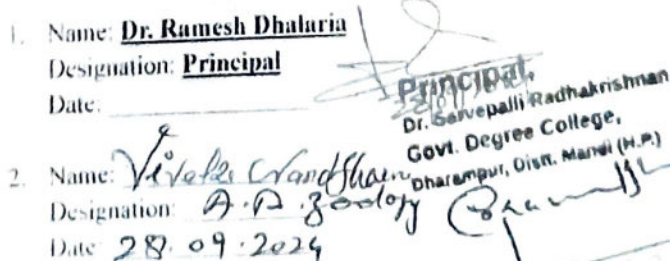 1. Name: Dr. Ramesh Dhalaria
Designation: Principal
Date:
Principal,
Dr. Sarvepalli Radhakrishnan
Govt. Degree College,
Dharampur, Distt. Mandi (H.P.)
2. Name:
Designation: A.P. Zoology
Date: 28.09.2024